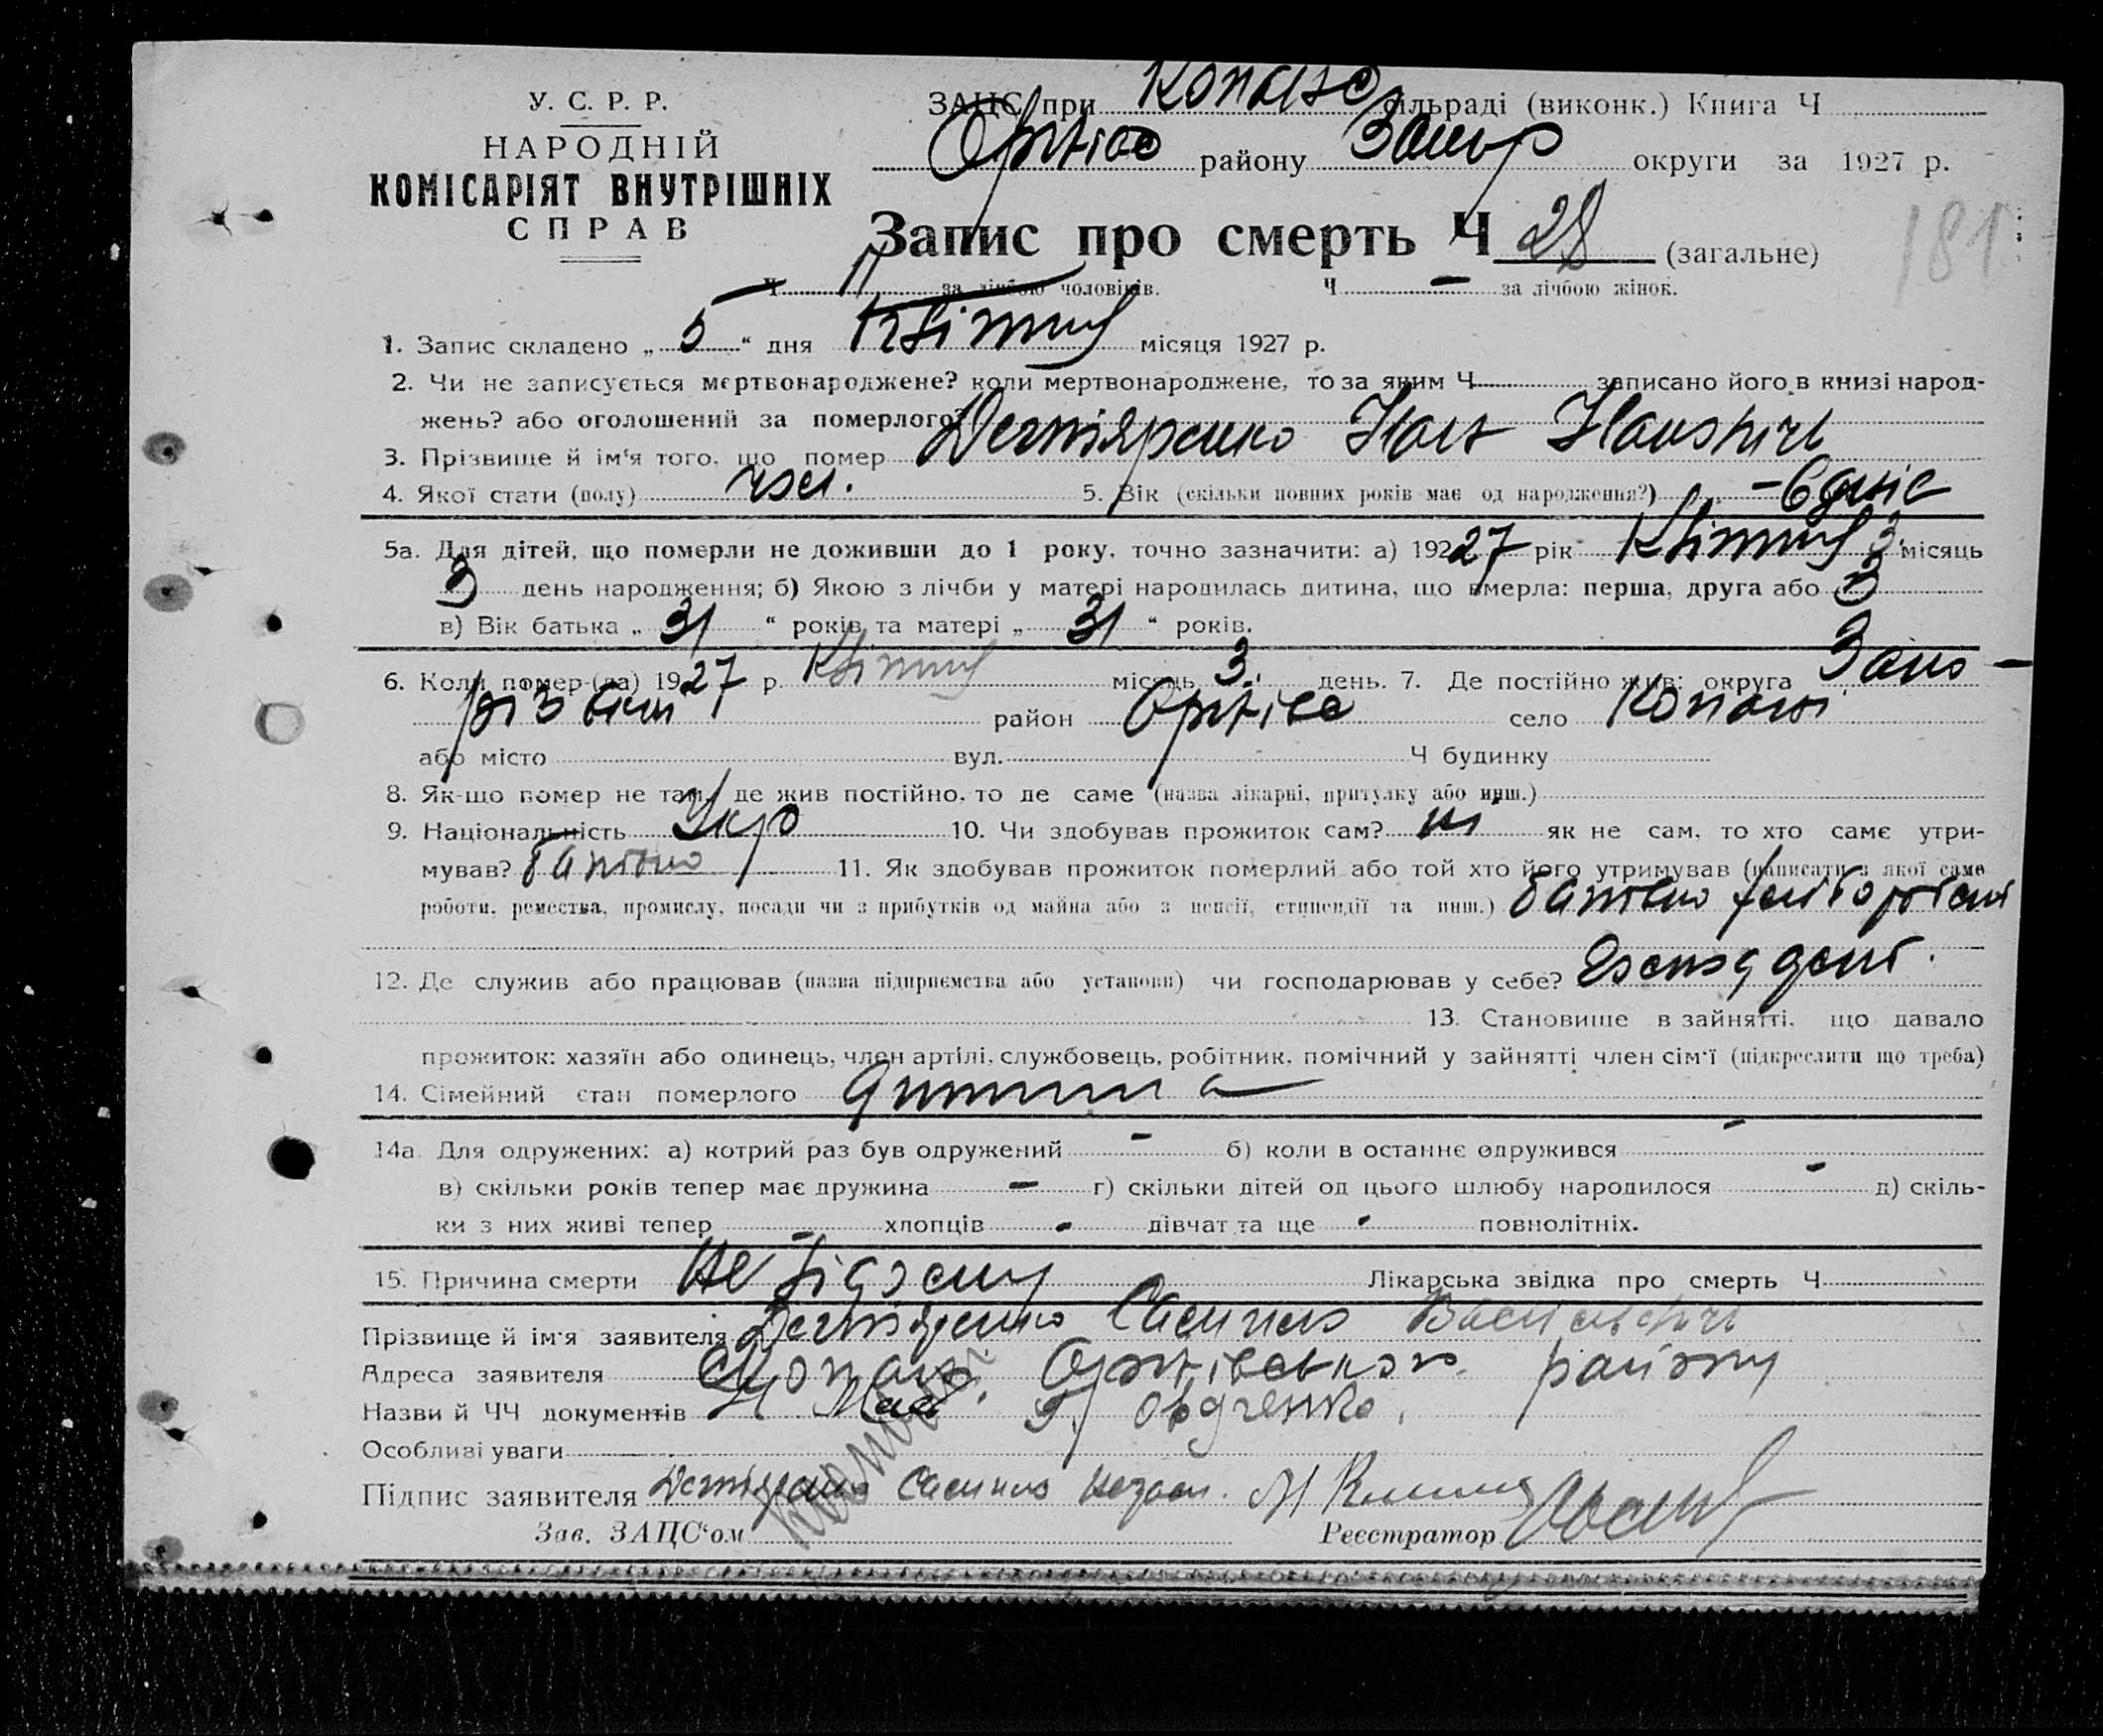 У. С. Р. Р.
НАРОДНІЙ
КОМІСАРІЯТ ВНУТРІШНІХ
СПРАВ
ЗАЦС при сільраді (виконк.) Книга Ч
району округи за 1927 р.
Запис про смерть Ч 28 (загальне)
181
Ч 11 за лічбою чоловіків. Ч - за лічбою жінок.
1. Запис складено „ 5 “ дня Квітня місяця 1927 р.
2. Чи не записується мертвонароджене? коли мертвонароджене, то за яким Ч записано його в книзі народ-
жень? або оголошений за померлого?
3. Прізвище й ім‘я того, що помер Дегтяренко Іван
4. Якої стати (полу) чол. 5. Вік (скільки повних років має од народження?)
5а. Для дітей, що померли не доживши до 1 року, точно зазначити: а) 192 27 рік Квітня 3. місяць
3 день народження; б) Якою з лічби у матері народилась дитина, що вмерла: перша, друга або 3
в) Вік батька „ 31 “ років та матері „ 31 “ років.
6. Коли помер-(ла) 19 27 р. Квітня місяць 3. день. 7. Де постійно жив: округа Запо-
різька район Оріхівс село Копані
або місто вул. Ч будинку
8. Як-що помер не там, де жив постійно, то де саме (назва лікарні, притулку або инш.)
9. Національність Укр 10. Чи здобував прожиток сам? ні як не сам, то хто саме утри-
мував? батько 11. Як здобував прожиток померлий або той хто його утримував (написати з якої саме
роботи, ремества, промислу, посади чи з прибутків од майна або з пенсії, стипендії та инш.) батько хлібороб
12. Де служив або працював (назва підприємства або установи) чи господарював у себе?
13. Становище в зайнятті, що давало
прожиток: хазяїн або одинець, член артілі, службовець, робітник, помічний у зайнятті член сім‘ї (підкреслити що треба)
14. Сімейний стан померлого дитина
14а. Для одружених: а) котрий раз був одружений - б) коли в останнє одружився -
в) скільки років тепер має дружина - г) скільки дітей од цього шлюбу народилося - д) скіль-
ки з них живі тепер - хлопців - дівчат та ще - повнолітніх.
15. Причина смерти Не відому Лікарська звідка про смерть Ч
Прізвище й ім‘я заявителя Дегтяренко Василь
Адреса заявителя с. Копані Оріхівського району
Назви й ЧЧ документів
Особливі уваги
Підпис заявителя Дегтяренко
Зав. ЗАЦС‘ом Реєстратор